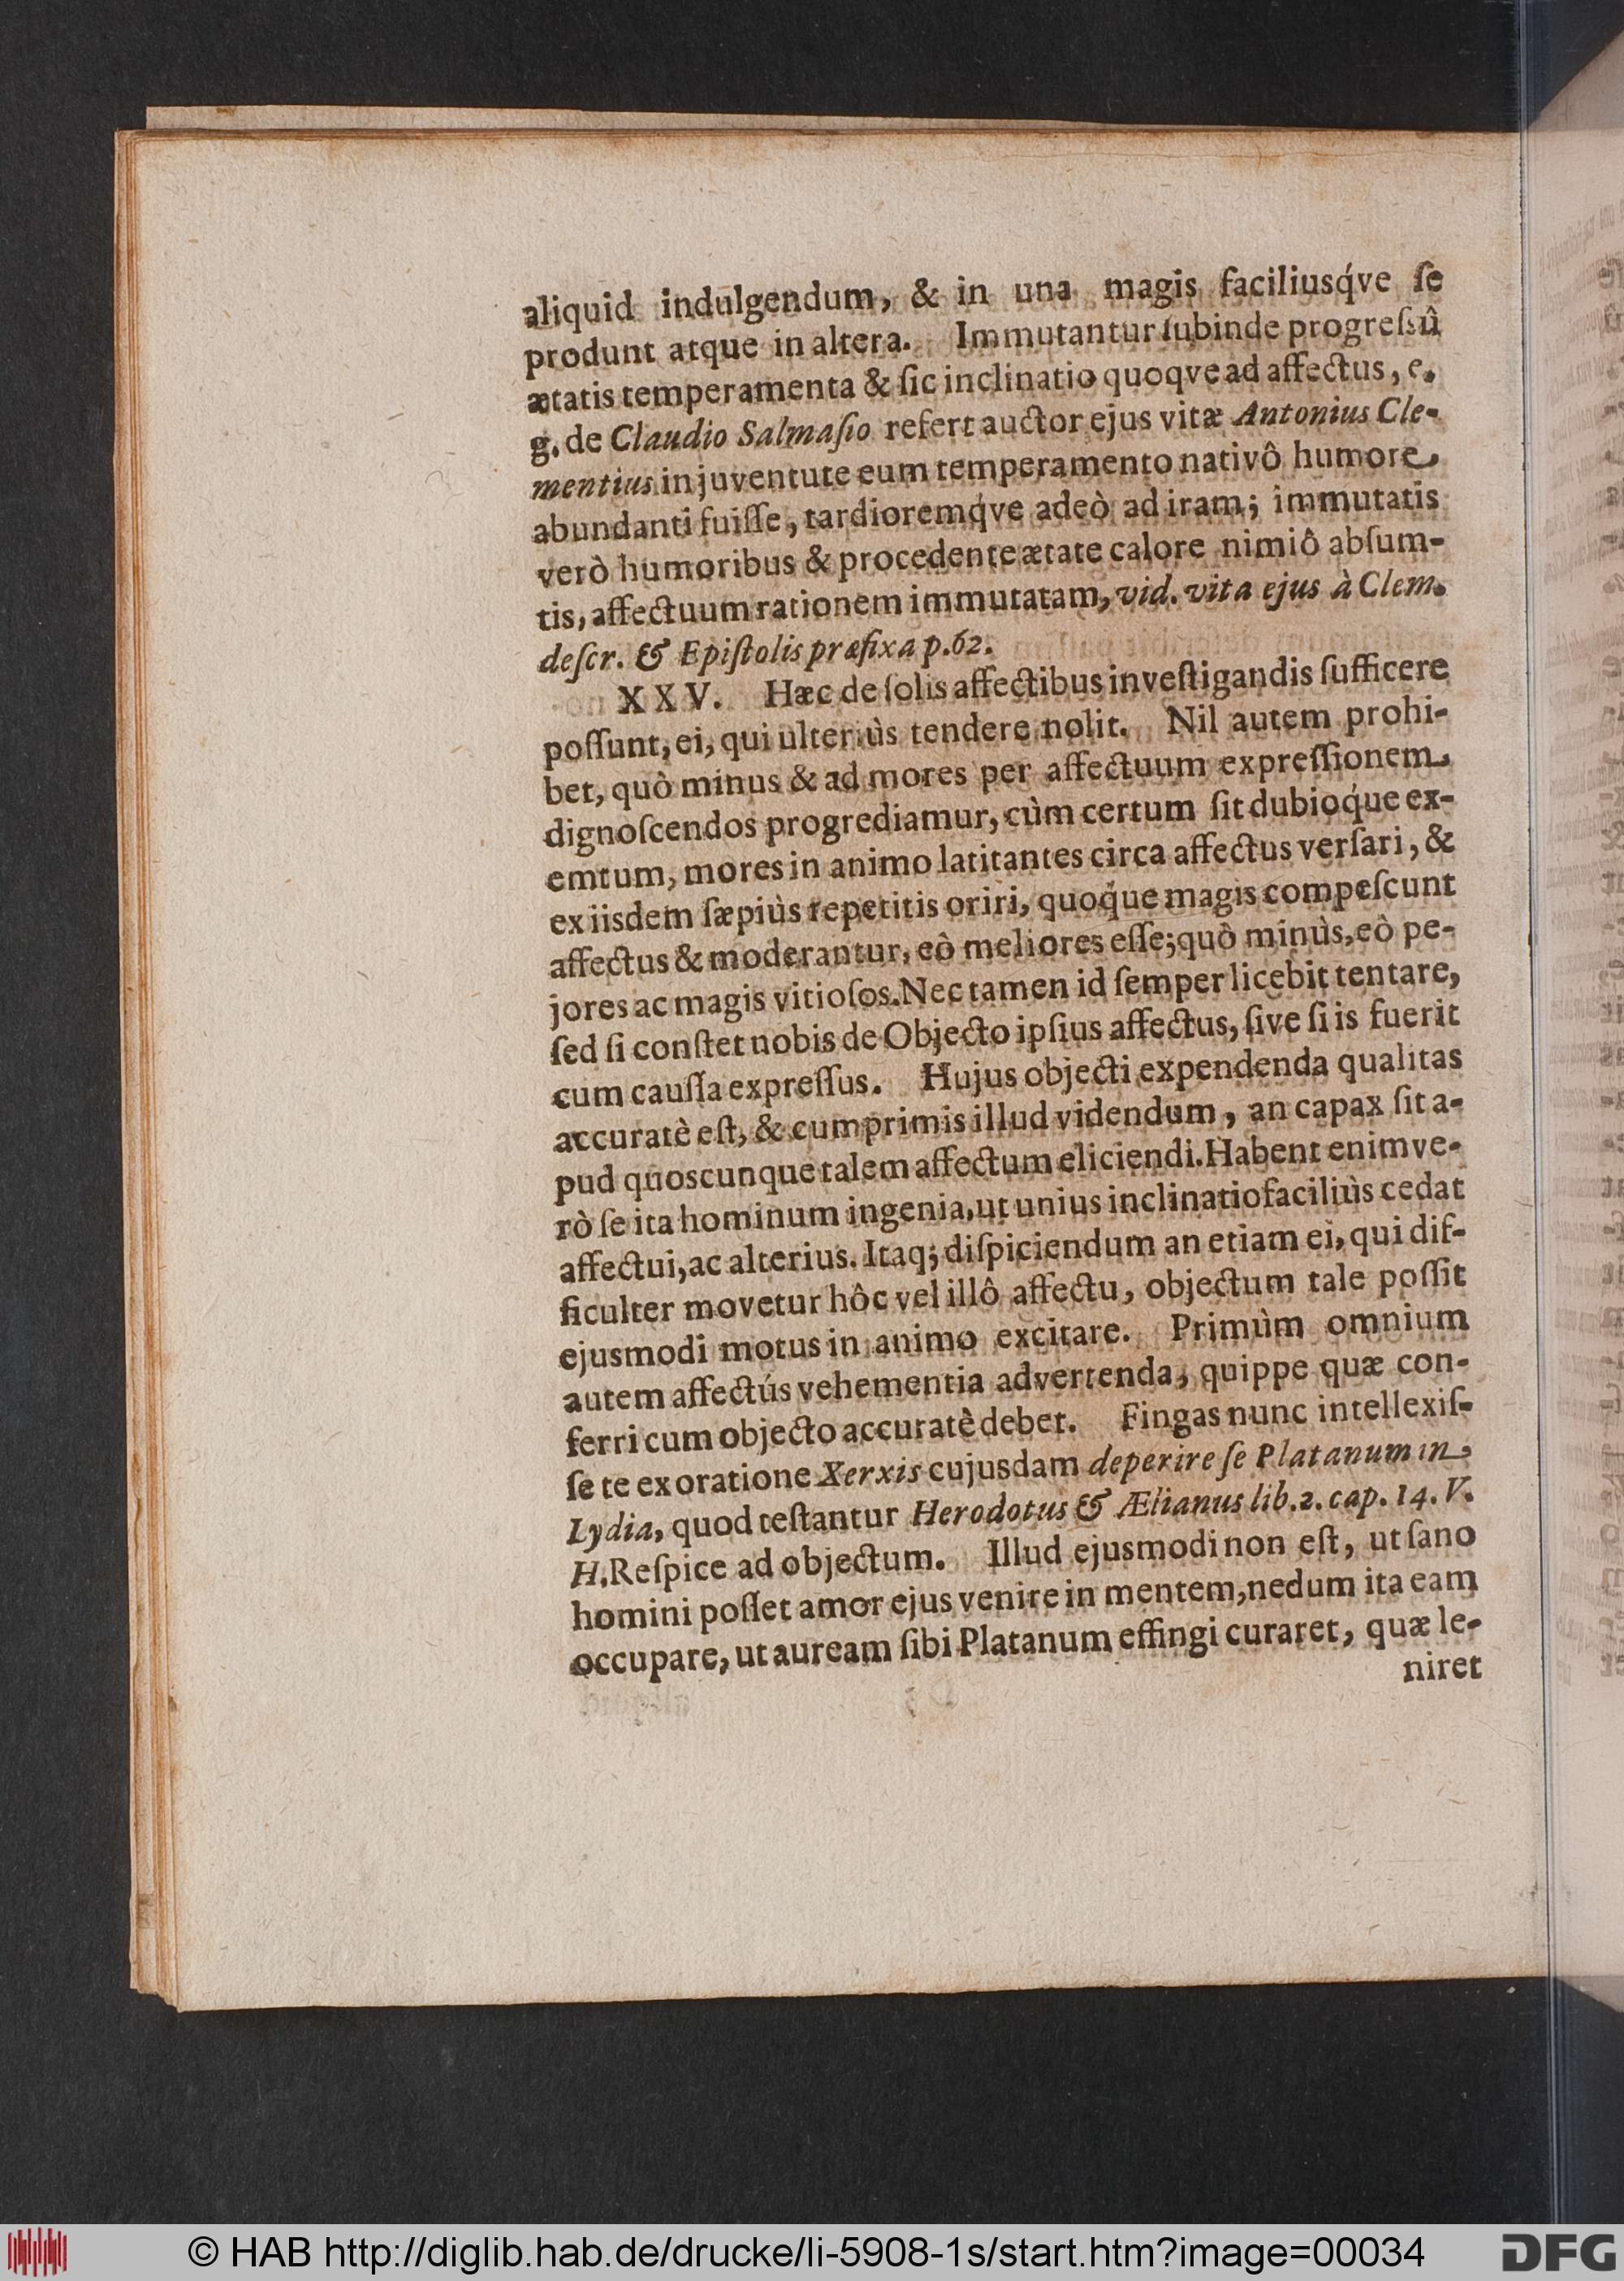 aliquid indulgendum, & in una magis faciliusq́ve ſe
produnt atque in altera. Immutantur ſubinde progreſsû
ætatis temperamenta & ſic inclinatio quoqve ad affectus, e.
g. de Claudio Salmaſio refert auctor ejus vitæ Antonius Cle-
mentius in juventute eum temperamento nativô humore
abundanti fuiſſe, tardioremq́ve adeò ad iram; immutatis
verò humoribus & procedente ætate calore nimiô abſum-
tis, affectuum rationem immutatam, vid. vita ejus à Clem.
deſcr. & Epiſtolis præfixa p. 62.
XXV. Hæc de ſolis affectibus inveſtigandis ſufficere
poſſunt, ei, qui ulteriùs tendere nolit. Nil autem prohi-
bet, quò minus & ad mores per affectuum expreſſionem
dignoſcendos progrediamur, cùm certum ſit dubioq́ue ex-
emtum, mores in animo latitantes circa affectus verſari, &
ex iisdem ſæpiùs repetitis oriri, quoq́ue magis compeſcunt
affectus & moderantur, eò meliores eſſe; quò minùs, eò pe-
jores ac magis vitioſos. Nec tamen id ſemper licebit tentare,
ſed ſi conſtet nobis de Objecto ipſius affectus, ſive ſi is fuerit
cum cauſſa expreſſus. Hujus objecti expendenda qualitas
accuratè eſt, & cumprimis illud videndum, an capax ſit a-
pud quoscunque talem affectum eliciendi. Habent enimve-
rò ſe ita hominum ingenia, ut unius inclinatio faciliùs cedat
affectui, ac alterius. Itaq; diſpiciendum an etiam ei, qui dif-
ficulter movetur hôc vel illô affectu, objectum tale poſſit
ejusmodi motus in animo excitare. Primùm omnium
autem affectús vehementia advertenda, quippe quæ con-
ferri cum objecto accuratè debet. Fingas nunc intellexiſ-
ſe te ex oratione Xerxis cujusdam deperire ſe Platanum in
Lydia, quod teſtantur Herodotus & Ælianus lib. 2. cap. 14. V.
H. Reſpice ad objectum. Illud ejusmodi non eſt, ut ſano
homini poſſet amor ejus venire in mentem, nedum ita eam
occupare, ut auream ſibi Platanum effingi curaret, quæ le-
niret
© HAB http://diglib.hab.de/drucke/li-5908-1s/start.htm?image=00034
DFG